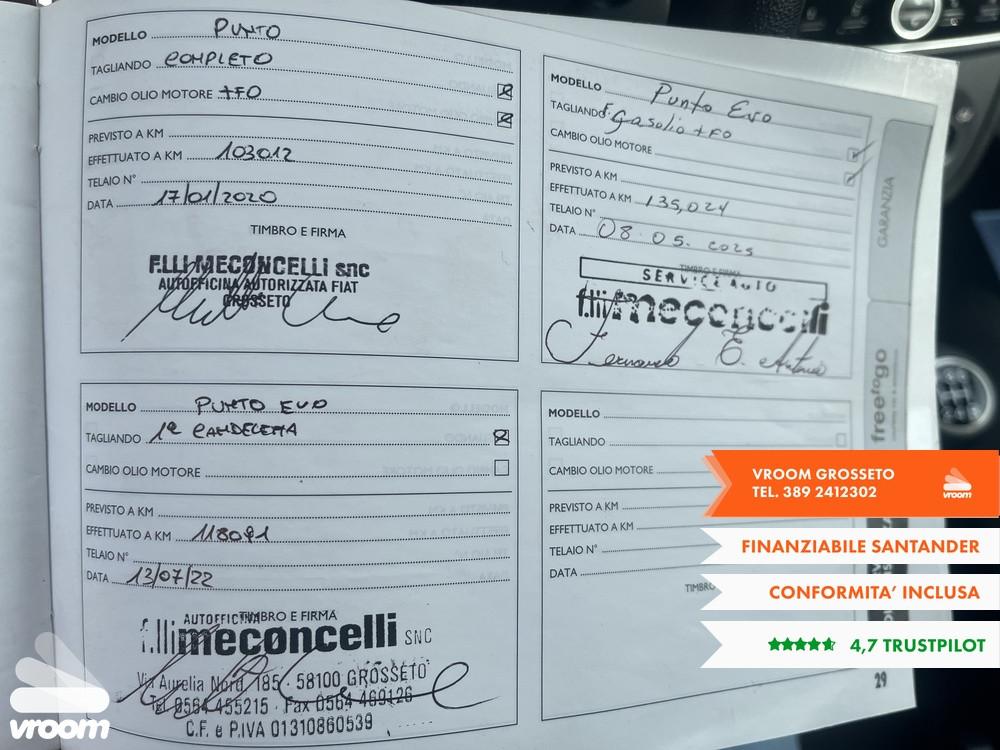 MODELLO PUNTO
TAGLIANDO COMPLETO
CAMBIO OLIO MOTORE +FO
PREVISTO A KM
EFFETTUATO A KM 103012
TELAIO N°
DATA 17/01/2020
TIMBRO E FIRMA
F.LLI MECONCELLI snc
AUTOFFICINA AUTORIZZATA FIAT
GROSSETO
MODELLO PUNTO EVO
TAGLIANDO 1ª CANDELETTA
CAMBIO OLIO MOTORE
PREVISTO A KM
EFFETTUATO A KM 118091
TELAIO N°
DATA 13/07/22
TIMBRO E FIRMA
AUTOFFICINA
f.lli meconcelli SNC
Via Aurelia Nord, 185 - 58100 GROSSETO
Tel. 0564 455215 - Fax 0564 469126
C.F. e P.IVA 01310860539
MODELLO Punto Evo
TAGLIANDO F. gasolio + FO
CAMBIO OLIO MOTORE
PREVISTO A KM
EFFETTUATO A KM 135,024
TELAIO N°
DATA 08.05.2025
TIMBRO E FIRMA
SERVICE AUTO
f.lli meconcelli
MODELLO
TAGLIANDO
CAMBIO OLIO MOTORE
PREVISTO A KM
EFFETTUATO A KM
TELAIO N°
DATA
TIMBRO
GARANZIA
free to go
29
VROOM GROSSETO
TEL. 389 2412302
vroom
FINANZIABILE SANTANDER
CONFORMITA' INCLUSA
4,7 TRUSTPILOT
vroom